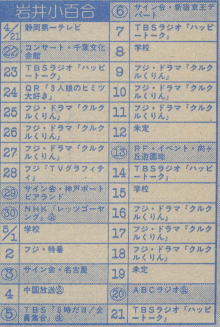 岩井小百合
4/21 静岡第一テレビ
22 コンサート・千葉文化会館
23 TBSラジオ「ハッピートーク」
24 QR「3人娘のヒミツ大好き」
25 フジ・ドラマ「クルクルくりん」
26 フジ・ドラマ「クルクルくりん」
27 フジ・ドラマ「クルクルくりん」
28 フジ「TVグラフィティ」
29 サイン会・神戸ポートピアランド
30 NHK「レッツゴーヤング」
5/1 学校
2 フジ・特番
3 サイン会・名古屋
4 中国放送
5 TBS「8時だヨ!全員集合」
6 サイン会・新宿京王デパート
7 TBSラジオ「ハッピートーク」
8 学校
9 フジ・ドラマ「クルクルくりん」
10 フジ・ドラマ「クルクルくりん」
11 フジ・ドラマ「クルクルくりん」
12 未定
13 RF・イベント・向ヶ丘遊園地
14 TBSラジオ「ハッピートーク」
15 学校
16 フジ・ドラマ「クルクルくりん」
17 フジ・ドラマ「クルクルくりん」
18 フジ・ドラマ「クルクルくりん」
19 未定
20 ABCラジオ
21 TBSラジオ「ハッピートーク」